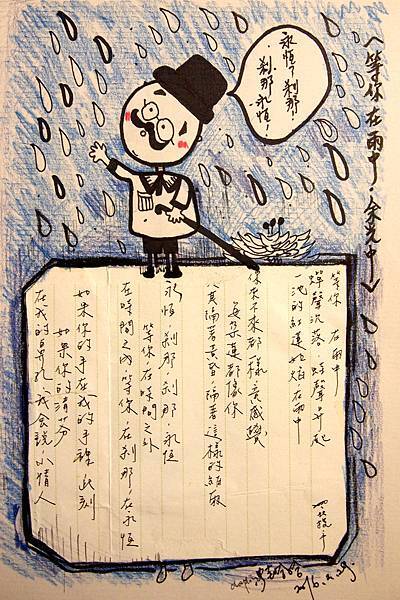 〈等你在雨中.余光中〉
永恆?刹那!!
刹那.永恆!
等你 在雨中
蟬聲沉落,蛙聲升起
一池的紅蓮如焰,在雨中
你來不來都一樣,竟感覺
每朵蓮都像你
尤其隔著黃昏,隔著這樣的細雨
永恆,刹那,刹那,永恆
等你,在時間之外
在時間之內,等你,在刹那,在永恆
如果你的手在我的手裡,此刻
如果你的清芬
在我的鼻孔,我會說,小情人
2016.2.29.